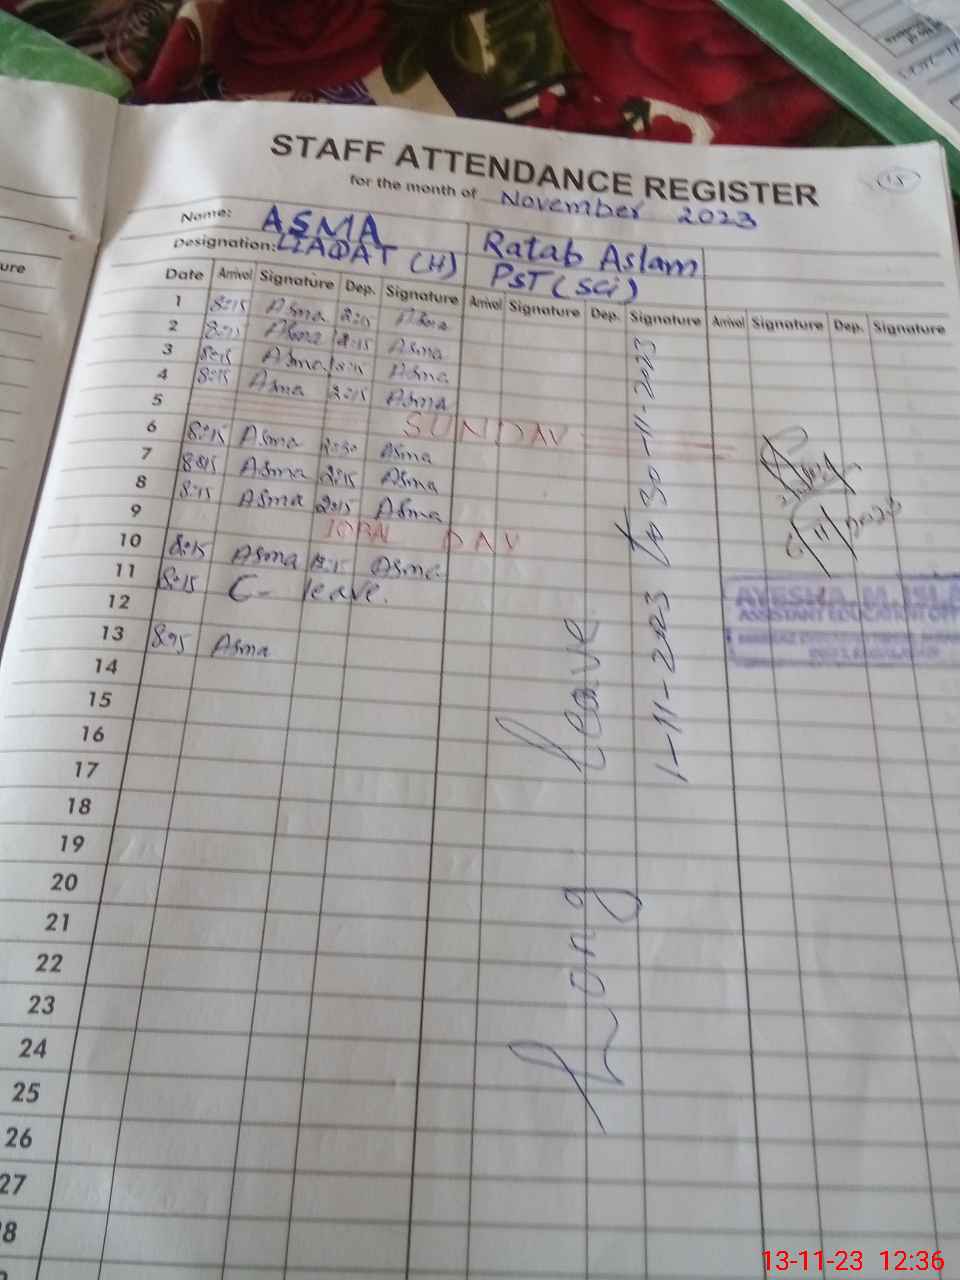 STAFF ATTENDANCE REGISTER
15
for the month of November 2023
Name: ASMA Ratab Aslam
Designation: LIAQAT (H) PST (Sci)
Date Arrival Signature Dep. Signature Arrival Signature Dep. Signature Arrival Signature Dep. Signature
1 8:15 Asma 2:15 Asma
2 8:15 Asma 2:15 Asma
3 8:15 Asma Asma
4 8:15 Asma 2:15 Asma
5 SUNDAY
6 8:15 Asma 2:30 Asma
7 8:15 Asma 2:15 Asma
8 8:15 Asma 2:15 Asma
9 IQBAL DAY
10 8:15 Asma Asma
11 8:15 C- leave.
12
13 8:15 Asma
14
15
16
17
18
19
20
21
22
23
24
25
26
27
Long Leave
1-11-2023 to 30-11-2023
AYESHA
ASSISTANT EDUCATION
ure
13-11-23 12:36